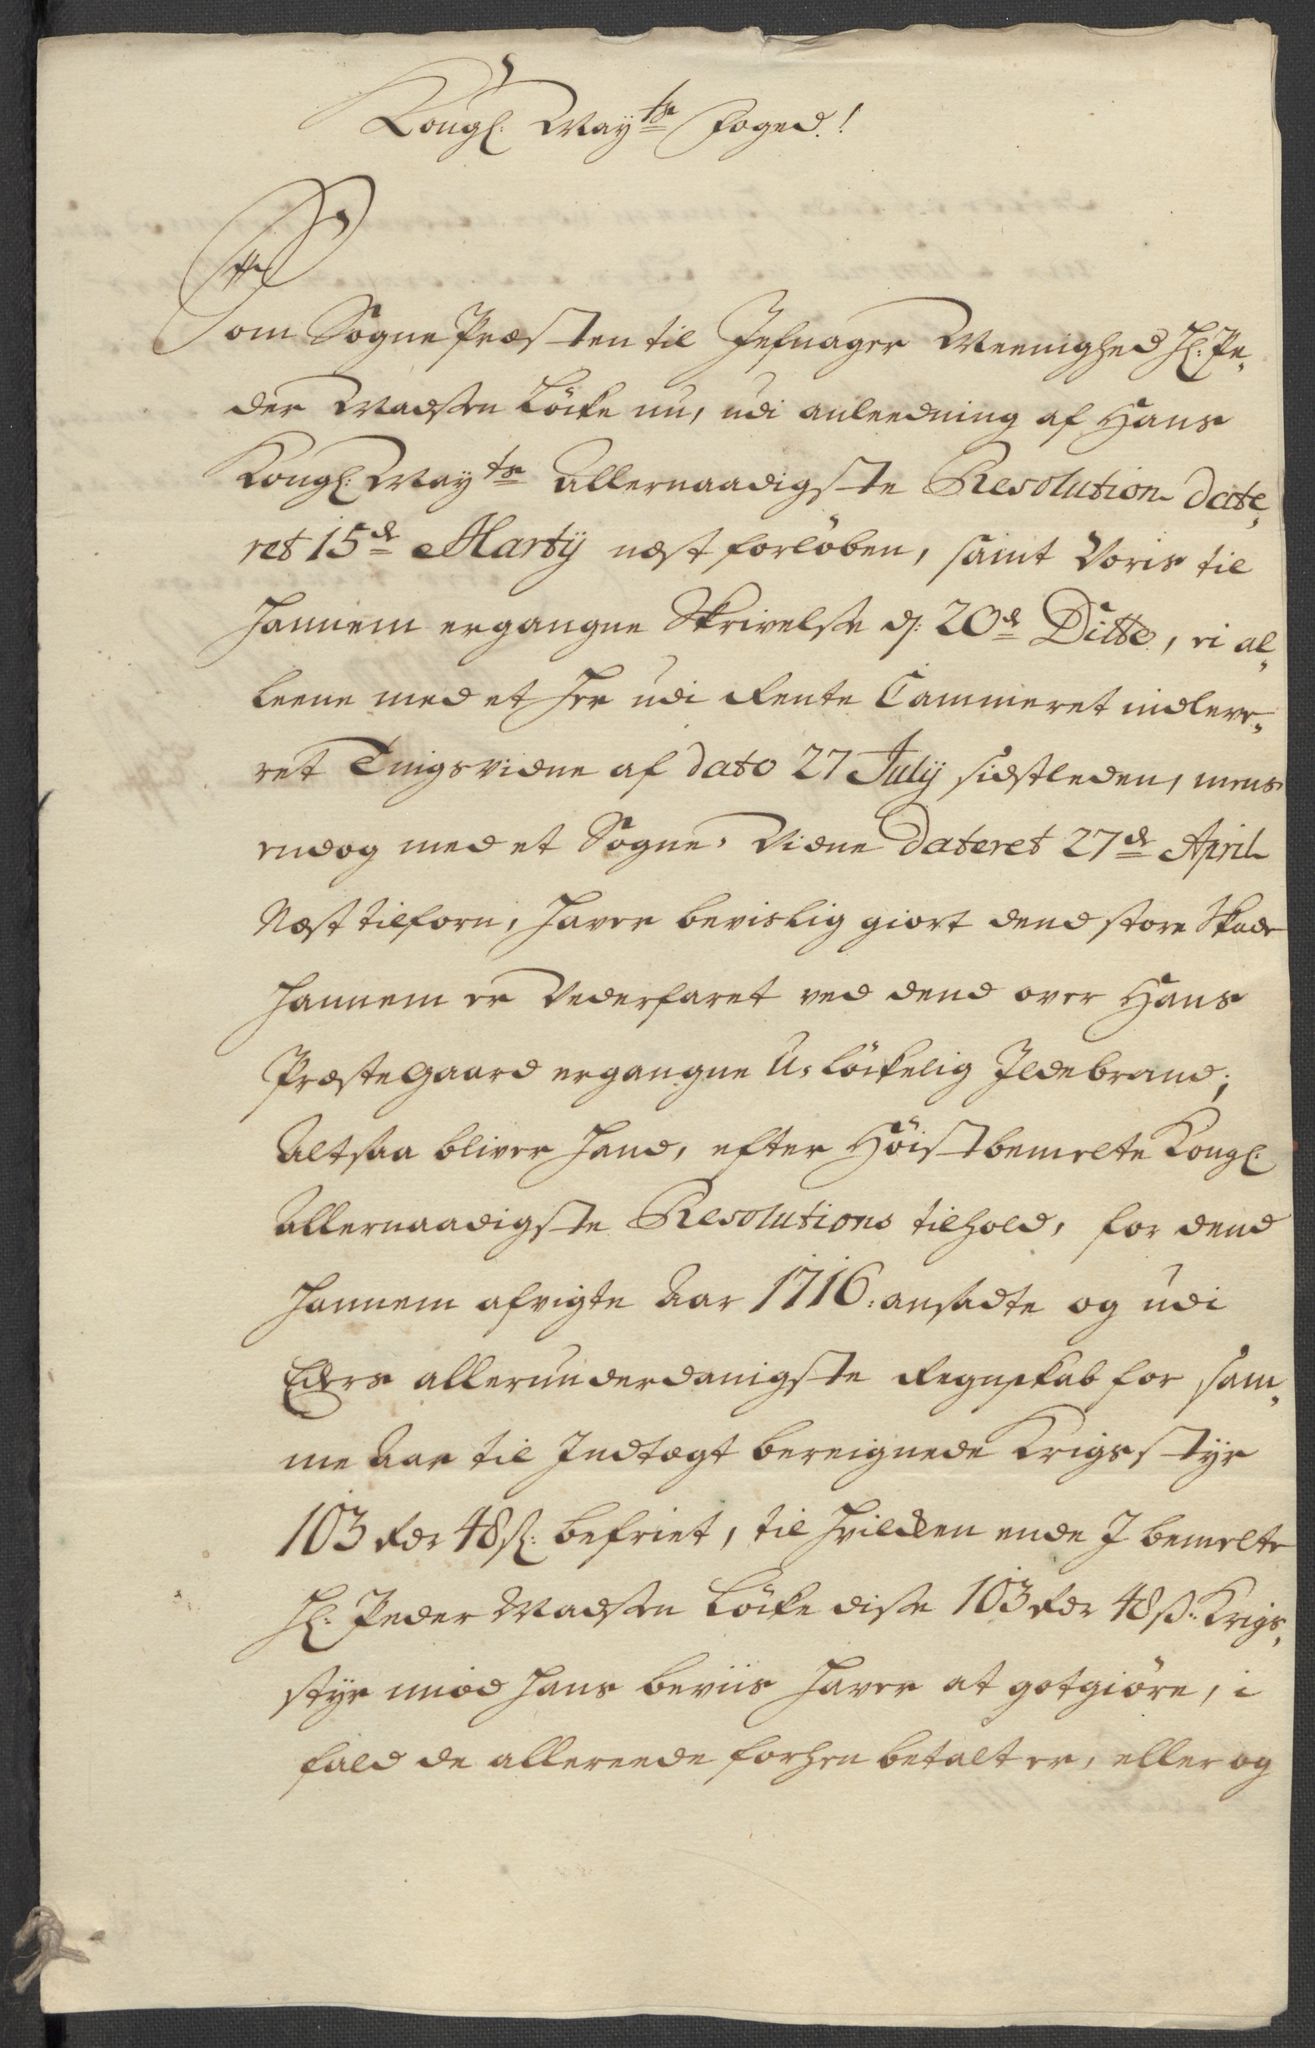 Kongl: May.ts Foged!
Som Sogne Præsten til Jefnager Meenighed Hr: Pe-
der Madssen Löcke nu, udi anleedning af Hans
Kongl: May.ts Allernaadigste Resolution date-
ret 15de Martij næst forlöben, samt Voris til
hannem ergangne Skrivelse dj: 20de Ditto, ei al-
leene med et her udi Rente Cammeret indleve-
ret Tingsvidne af dato 27 Julij sidstleden, mens
endog med et Sogne-Vidne dateret 27de April
Næst tilforn, haver bevislig giort dend store Skade
hannem er Vederfaret ved dend over Hans
Præstegaard ergangne U-löckelig Ildebrand;
Altsaa bliver hand, efter Höistbemelte Kongl:
Allernaadigste Resolutions tilhold, for dend
hannem afvigte Aar 1716: ansadte og udi
Eders allerunderdanigste Regnskab for sam-
me Aar til Indtægt bereignede Krigsstyr
103 Rdr 48 s: befriet, til hvilcken ende I bemelte
Hr: Peder Madssen Löcke disse 103 Rdr 48 s: Krigs-
styr imod hans beviis haver at gotgiöre, i
fald de allereede forhen betalt er, eller og